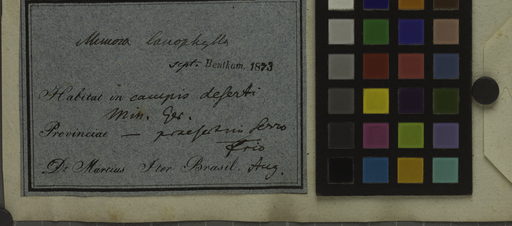 Mimosa lanophylla
sept. Bentham. 1873
Habitat in campis deserti
Min. Ger.
Provinciae — praesertim Serro
Frio
Dr Martius Iter Brasil. Aug.